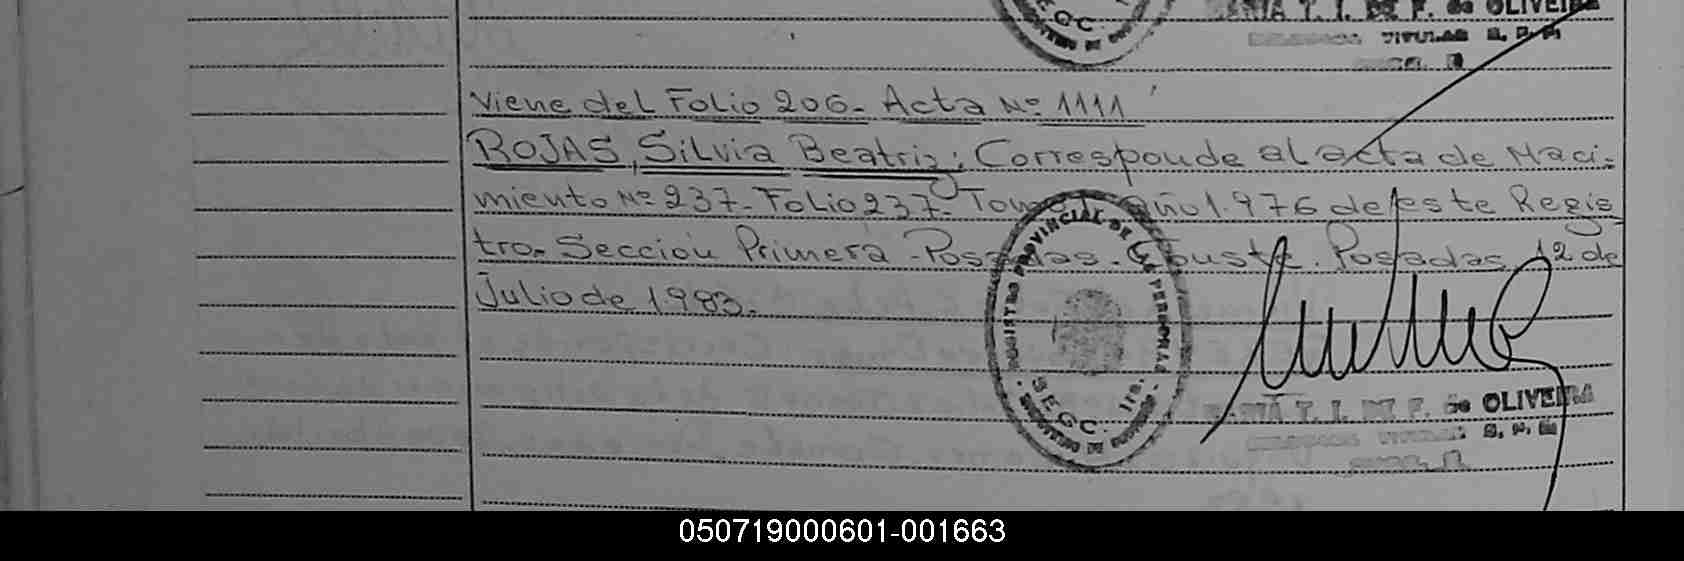 MARIA T. I. DE F. de OLIVEIRA
TITULAR
Viene del Folio 206- Acta Nº 1111
ROJAS, Silvia Beatriz: Corresponde al acta de Naci-
miento Nº 237- Folio 237- Tomo año 1.976 de este Regis
tro- Sección Primera -Posadas- Conste. Posadas, 12 de
Julio de 1983.
REGISTRO PROVINCIAL DE LAS PERSONAS
SEGC. 1ra.
MARIA T. I. DE F. de OLIVEIRA
050719000601-001663